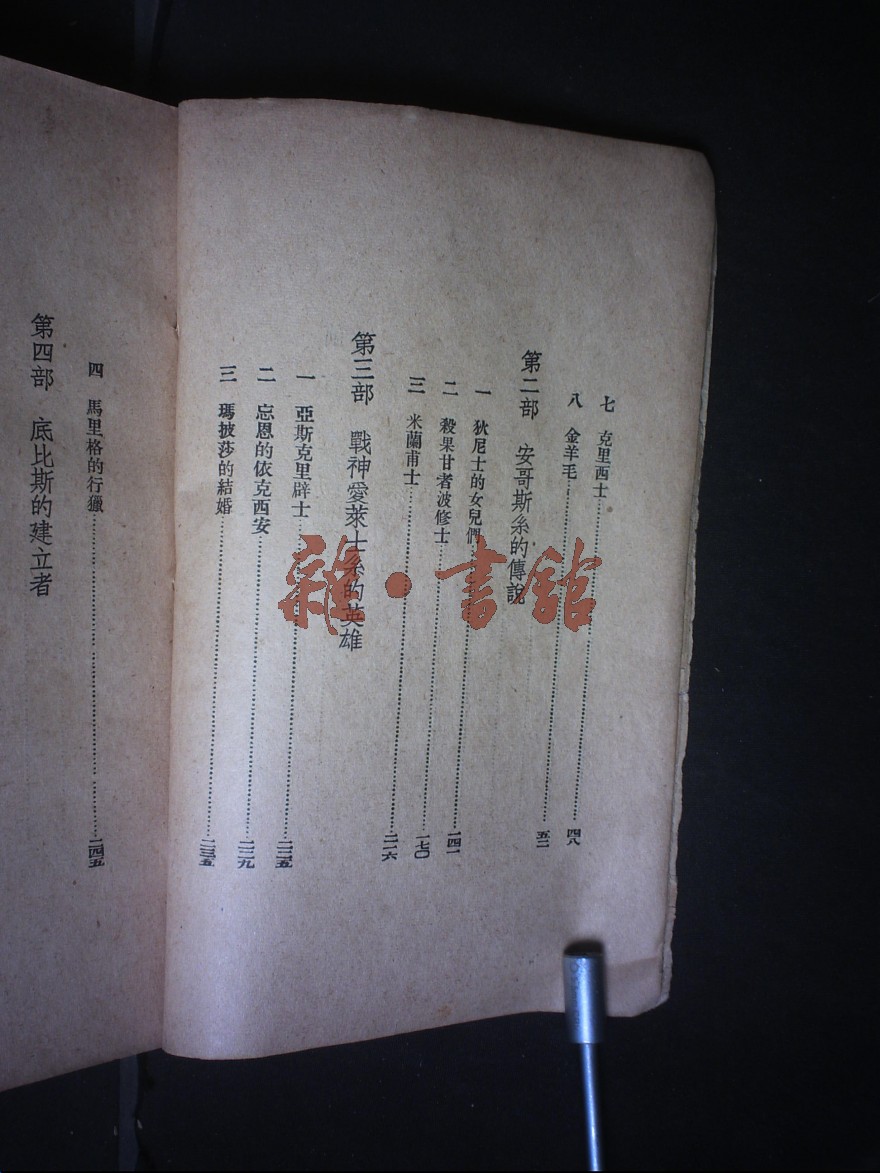 七 克里西士……四八
八 金羊毛……五二
第二部 安哥斯系的傳說
一 狄尼士的女兒們……一四一
二 殺果甘者波修士……一七〇
三 米蘭甫士……二一六
第三部 戰神愛萊士系的英雄
一 亞斯克里辟士……二二五
二 忘恩的依克西安……二二九
三 瑪披莎的結婚……二三五
四 馬里格的行獵……二四五
第四部 底比斯的建立者
雜·書館